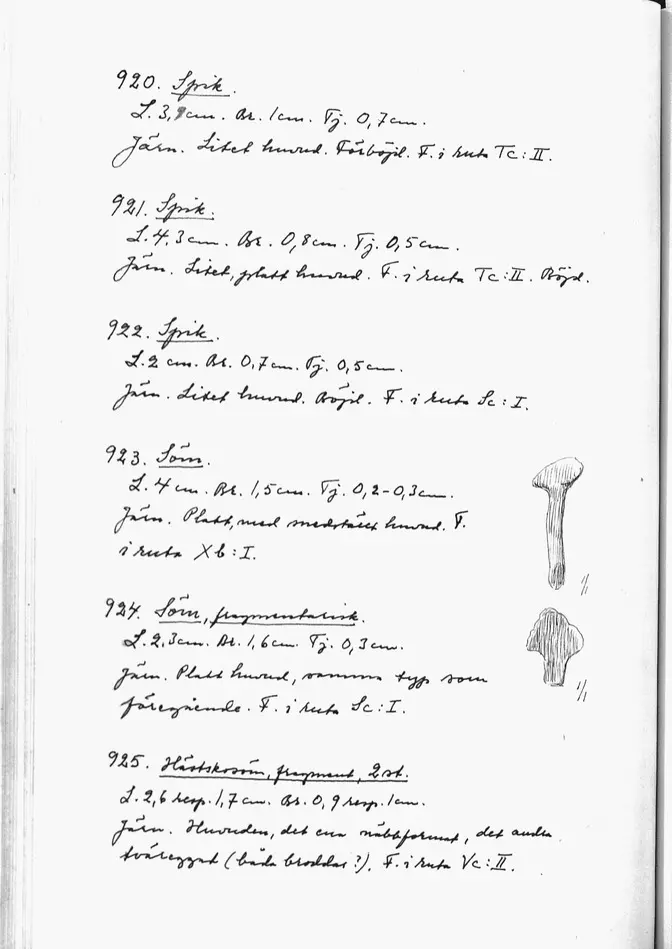 920. Spik.
L. 3,9cm. Br. 1cm. Tj. 0,7cm.
Järn. Litet huvud. Förböjd. F. i ruta Tc:II.
921. Spik.
L. 4,3cm. Br. 0,8cm. Tj. 0,5cm.
Järn. Litet, platt huvud. F. i ruta Tc:II. Böjd.
922. Spik.
L. 2 cm. Br. 0,7cm. Tj. 0,5cm.
Järn. Litet huvud. Böjd. F. i ruta Sc:I.
923. Söm.
L. 4cm. Br. 1,5cm. Tj. 0,2-0,3cm.
Järn. Platt, med huvud. F.
i ruta Xb:I.
1/1
924. Söm, fragmentarisk.
L. 2,3cm. Br. 1,6cm. Tj. 0,3cm.
Järn. Platt huvud, samma typ som
föregående. F. i ruta Sc:I.
1/1
925. Hästskosöm, fragment, 2 st.
L. 2,6 resp. 1,7cm. Br. 0,9 resp. 1cm.
Järn. Huvuden, det ena näbbformat, det andra
tväreggat (båda broddar?). F. i ruta Vc:II.